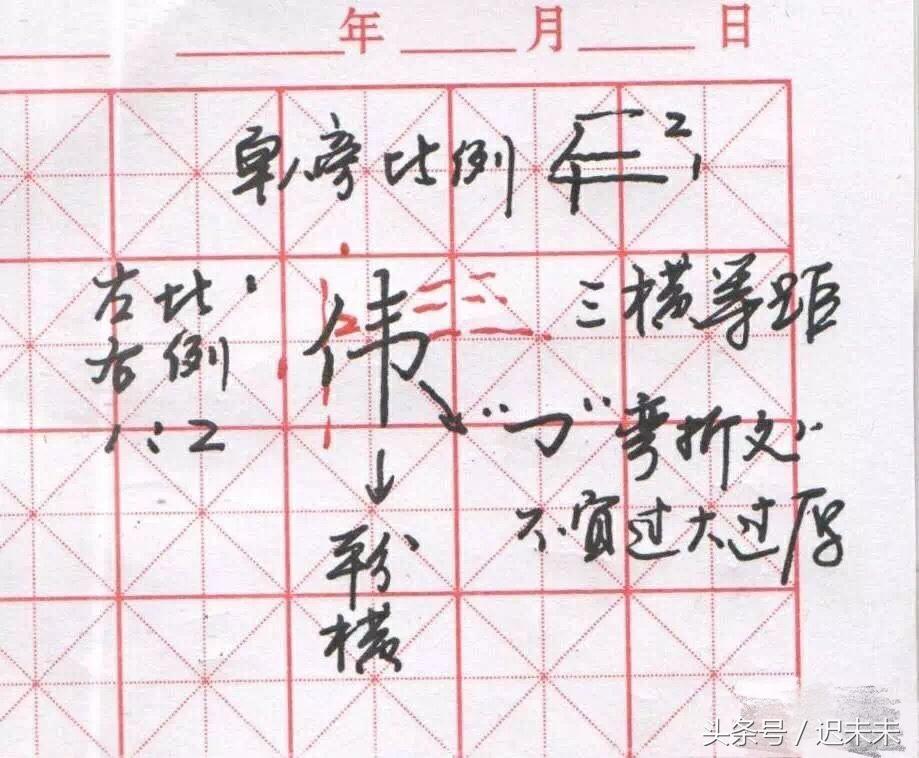 年 月 日
单旁比例 2 1
左比:
右例
1:2
伟
三横等距
"㇆"弯折处
不宜过大过厚
平分
横
头条号 / 迟未未